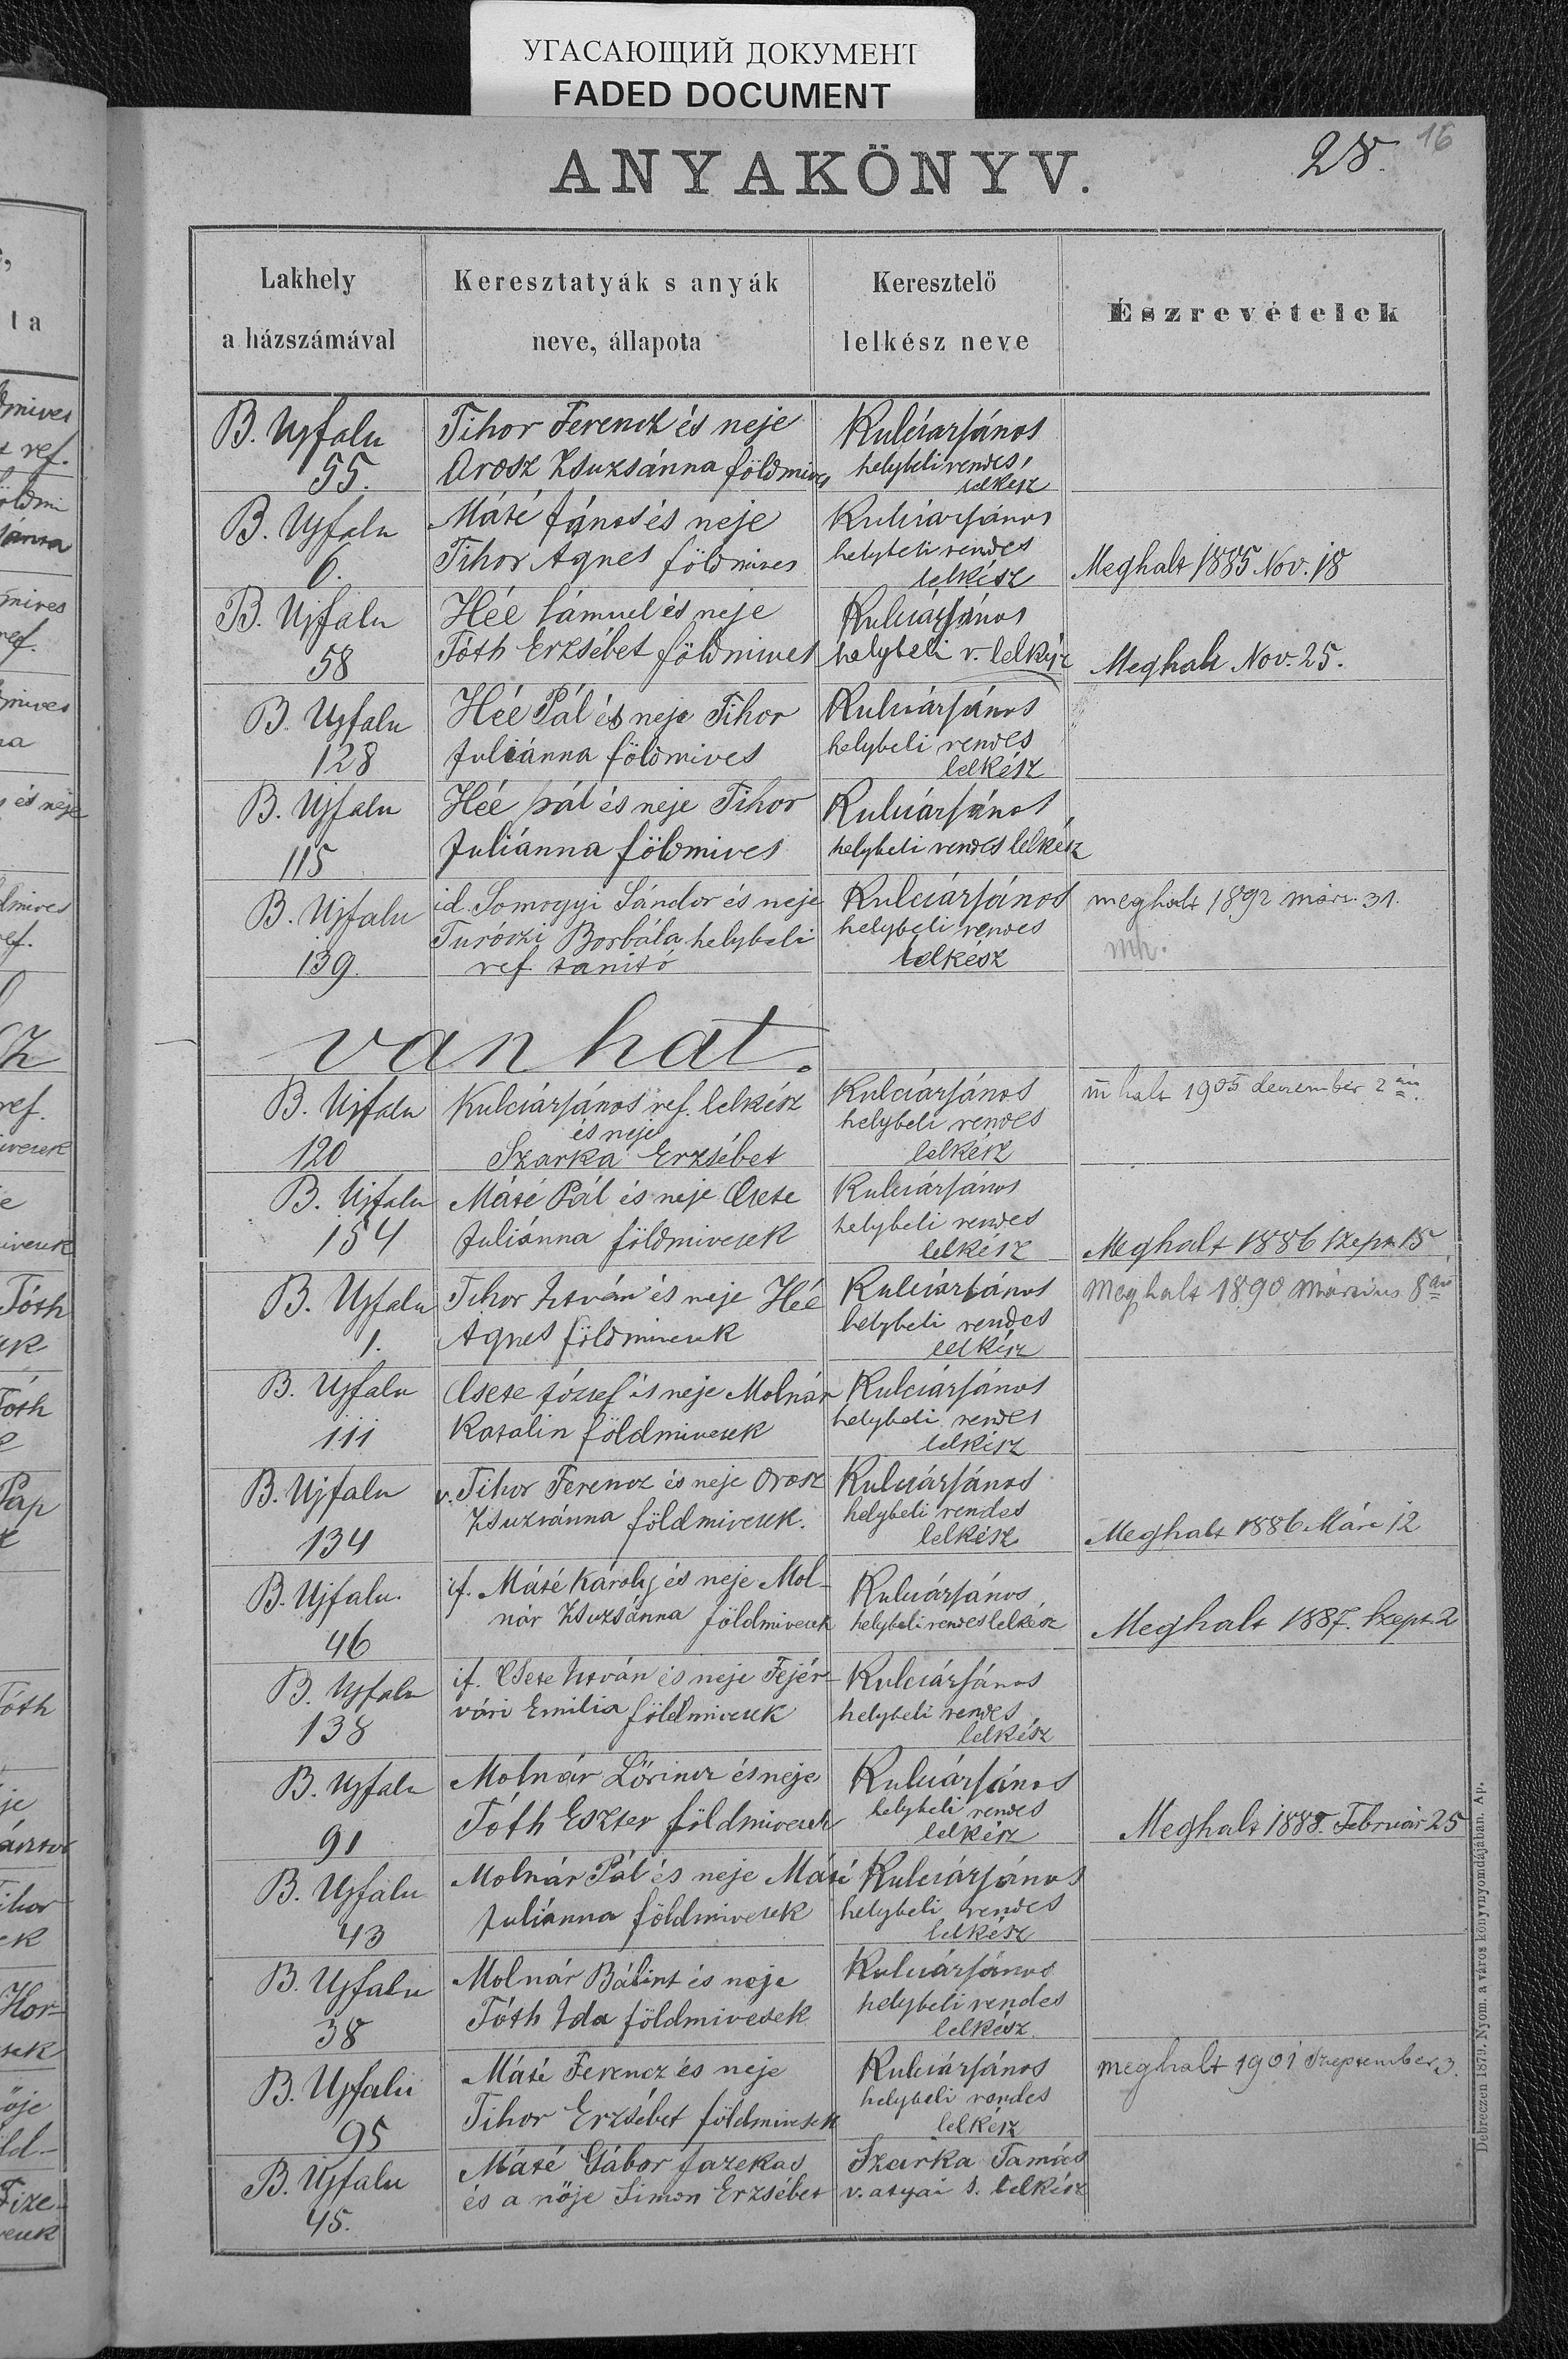 УГАСАЮЩИЙ ДОКУМЕНТ
FADED DOCUMENT
ANYAKÖNYV.
28.
16
Lakhely
a házszámával
Keresztatyák s anyák
neve, állapota
Keresztelő
lelkész neve
Észrevételek
B. Ujfalu
55.
Tihor Ferencz és neje
Orosz Zsuzsánna földmives
Kulcsár János
helybeli rendes
lelkész
B. Ujfalu
6.
Máté János és neje
Tihor Agnes földmives
Kulcsár János
helybeli rendes
lelkész
Meghalt 1885 Nov. 18
B. Ujfalu
58
Hée Sámuel és neje
Tóth Erzsébet földmives
Kulcsár János
helybeli r. lelkész
Meghalt Nov. 25.
B. Ujfalu
128
Hée Pál és neje Tihor
Juliánna földmives
Kulcsár János
helybeli rendes
lelkész
B. Ujfalu
115
Hée pál és neje Tihor
Juliánna földmives
Kulcsár János
helybeli rendes lelkész
B. Ujfalu
139.
id. Somogyi Sándor és neje
Turóczi Borbála helybeli
ref. tanitó
Kulcsár János
helybeli rendes
lelkész
meghalt 1892 márc. 31.
mh.
van hat.
B. Ujfalu
120
Kulcsár János ref. lelkész
és neje
Szarka Erzsébet
Kulcsár János
helybeli rendes
lelkész
m halt 1905 december 2 án.
B. Ujfalu
154
Máté Pál és neje Csete
Juliánna földmivesek
Kulcsár János
helybeli rendes
lelkész
Meghalt 1886 Szept 15
B. Ujfalu
1.
Tihor István és neje Hée
Agnes földmivesek
Kulcsár János
helybeli rendes
lelkész
Meghalt 1890 március 8 án
B. Ujfalu
111
Csete József és neje Molnár
Katalin földmivesek
Kulcsár János
helybeli rendes
lelkész
B. Ujfalu
134
v. Tihor Ferencz és neje Orosz
Zsuzsánna földmivesek.
Kulcsár János
helybeli rendes
lelkész
Meghalt 1886 Márc 12
B. Ujfalu.
46
if. Máté Károly és neje Mol-
nár Zsuzsánna földmivesek
Kulcsár János
helybeli rendes lelkész
Meghalt 1887. Szept. 2
B. Ujfalu
138
if. Csete István és neje Fejér-
vári Emilia földmivesek
Kulcsár János
helybeli rendes
lelkész
B. Ujfalu
91
Molnár Lőrincz és neje
Tóth Eszter földmivesek
Kulcsár János
helybeli rendes
lelkész
Meghalt 1888. Február 25
B. Ujfalu
43
Molnár Pál és neje Máté
Juliánna földmivesek
Kulcsár János
helybeli rendes
lelkész
B. Ujfalu
38
Molnár Bálint és neje
Tóth Ida földmivesek
Kulcsár János
helybeli rendes
lelkész
B. Ujfalu
95
Máté Ferencz és neje
Tihor Erzsébet földmivesek
Kulcsár János
helybeli rendes
lelkész
meghalt 1901 Szeptember 3.
B. Ujfalu
45.
Máté Gábor fazekas
és a nője Simon Erzsébet
Szarka Tamás
v. atyai s. lelkész
Debreczen 1879. Nyom. a város könyvnyomdájában. Ap.